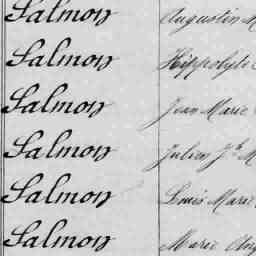 Salmon Augustin M
Salmon Hippolyte
Salmon Jean Marie
Salmon Julien Jh M
Salmon Louis Marie
Salmon Marie Ang